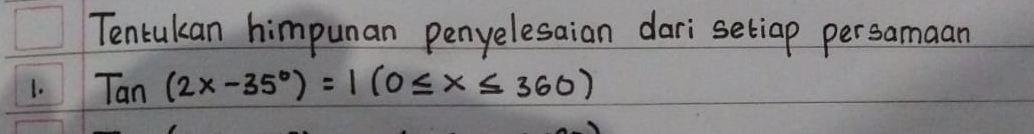 Tentukan himpunan penyelesaian dari setiap persamaan
1. Tan (2x-35°) = 1 (0 ≤ x ≤ 360)